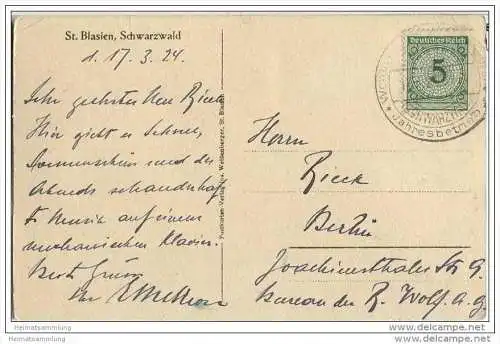 St. Blasien, Schwarzwald
d. 17. 3. 24.
Sehr geehrter Herr Rieck
Hier giebt es Schnee,
Sonnenschein und des
Abends schauderhaft
Musik auf einem
mechanischen Klavier.
Beste Grüsse
Ihr
Postkarten-Verlag Weissenberger, St. Blasien
Deutsches Reich
5
SCHWARZW
Jahresbetrieb
Herrn
Rieck
Berlin
Joachimsthaler Str 9
Bureau der R. Wolf A. G.
Heimatsammlung
heimatsammlung.net
Heimatsammlung
heimatsammlung.net